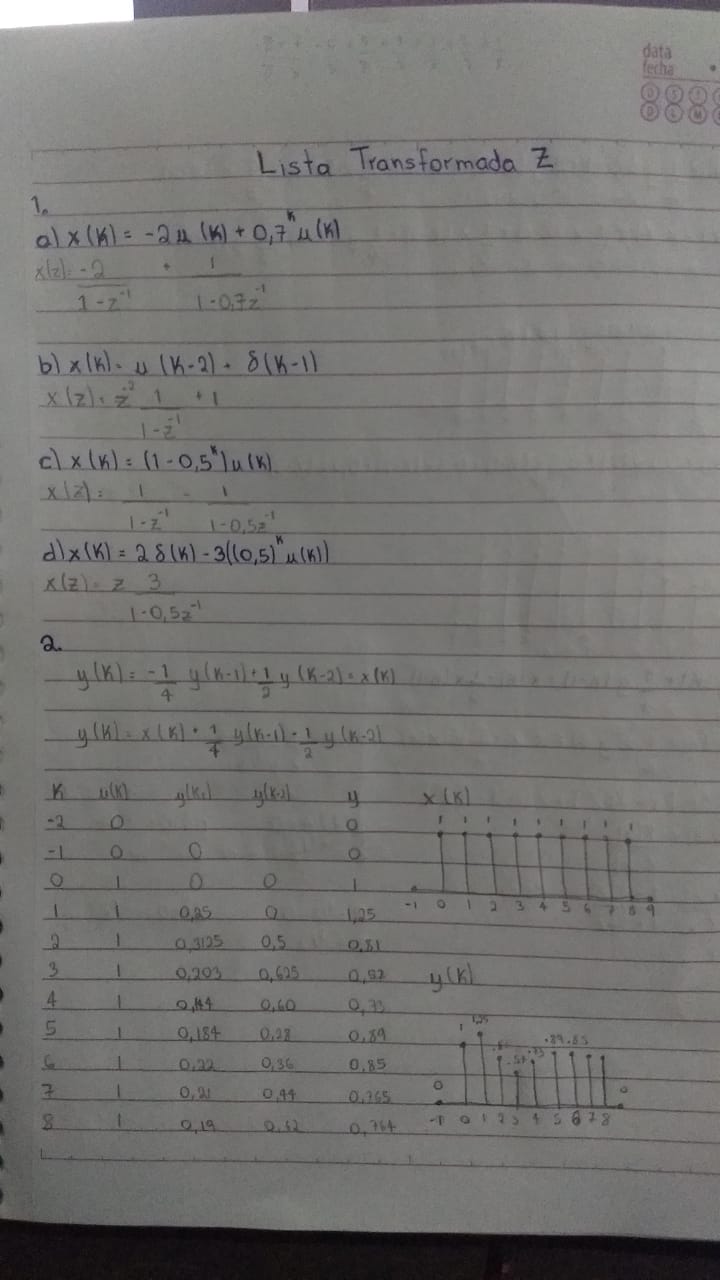 data
fecha
Lista Transformada Z
1.
a) x(k) = -2u(k) + 0,7^k u(k)
x(z) = -2/(1-z^-1) + 1/(1-0,7z^-1)
b) x(k) = u(k-2) + δ(k-1)
x(z) = z^-2 1/(1-z^-1) + 1
c) x(k) = (1-0,5^k)u(k)
x(z) = 1/(1-z^-1) - 1/(1-0,5z^-1)
d) x(k) = 2δ(k) - 3((0,5)^k u(k))
x(z) = 2 3/(1-0,5z^-1)
2.
y(k) = -1/4 y(k-1) + 1/2 y(k-2) = x(k)
y(k) = x(k) + 1/4 y(k-1) - 1/2 y(k-2)
k u(k) y(k-1) y(k-2) y x(k)
-2 0 0
-1 0 0 0
0 1 0 0 1
-1 0 1 2 3 4 5 6 7 8 9
1 1 0,25 0 1,25
2 1 0,3125 0,5 0,81
3 1 0,203 0,625 0,57
y(k)
4 1 0,144 0,60 0,73
5 1 0,184 0,28 0,89
6 1 0,22 0,36 0,85
7 1 0,21 0,44 0,765
8 1 0,19 0,764
-1 0 1 2 3 4 5 6 7 8